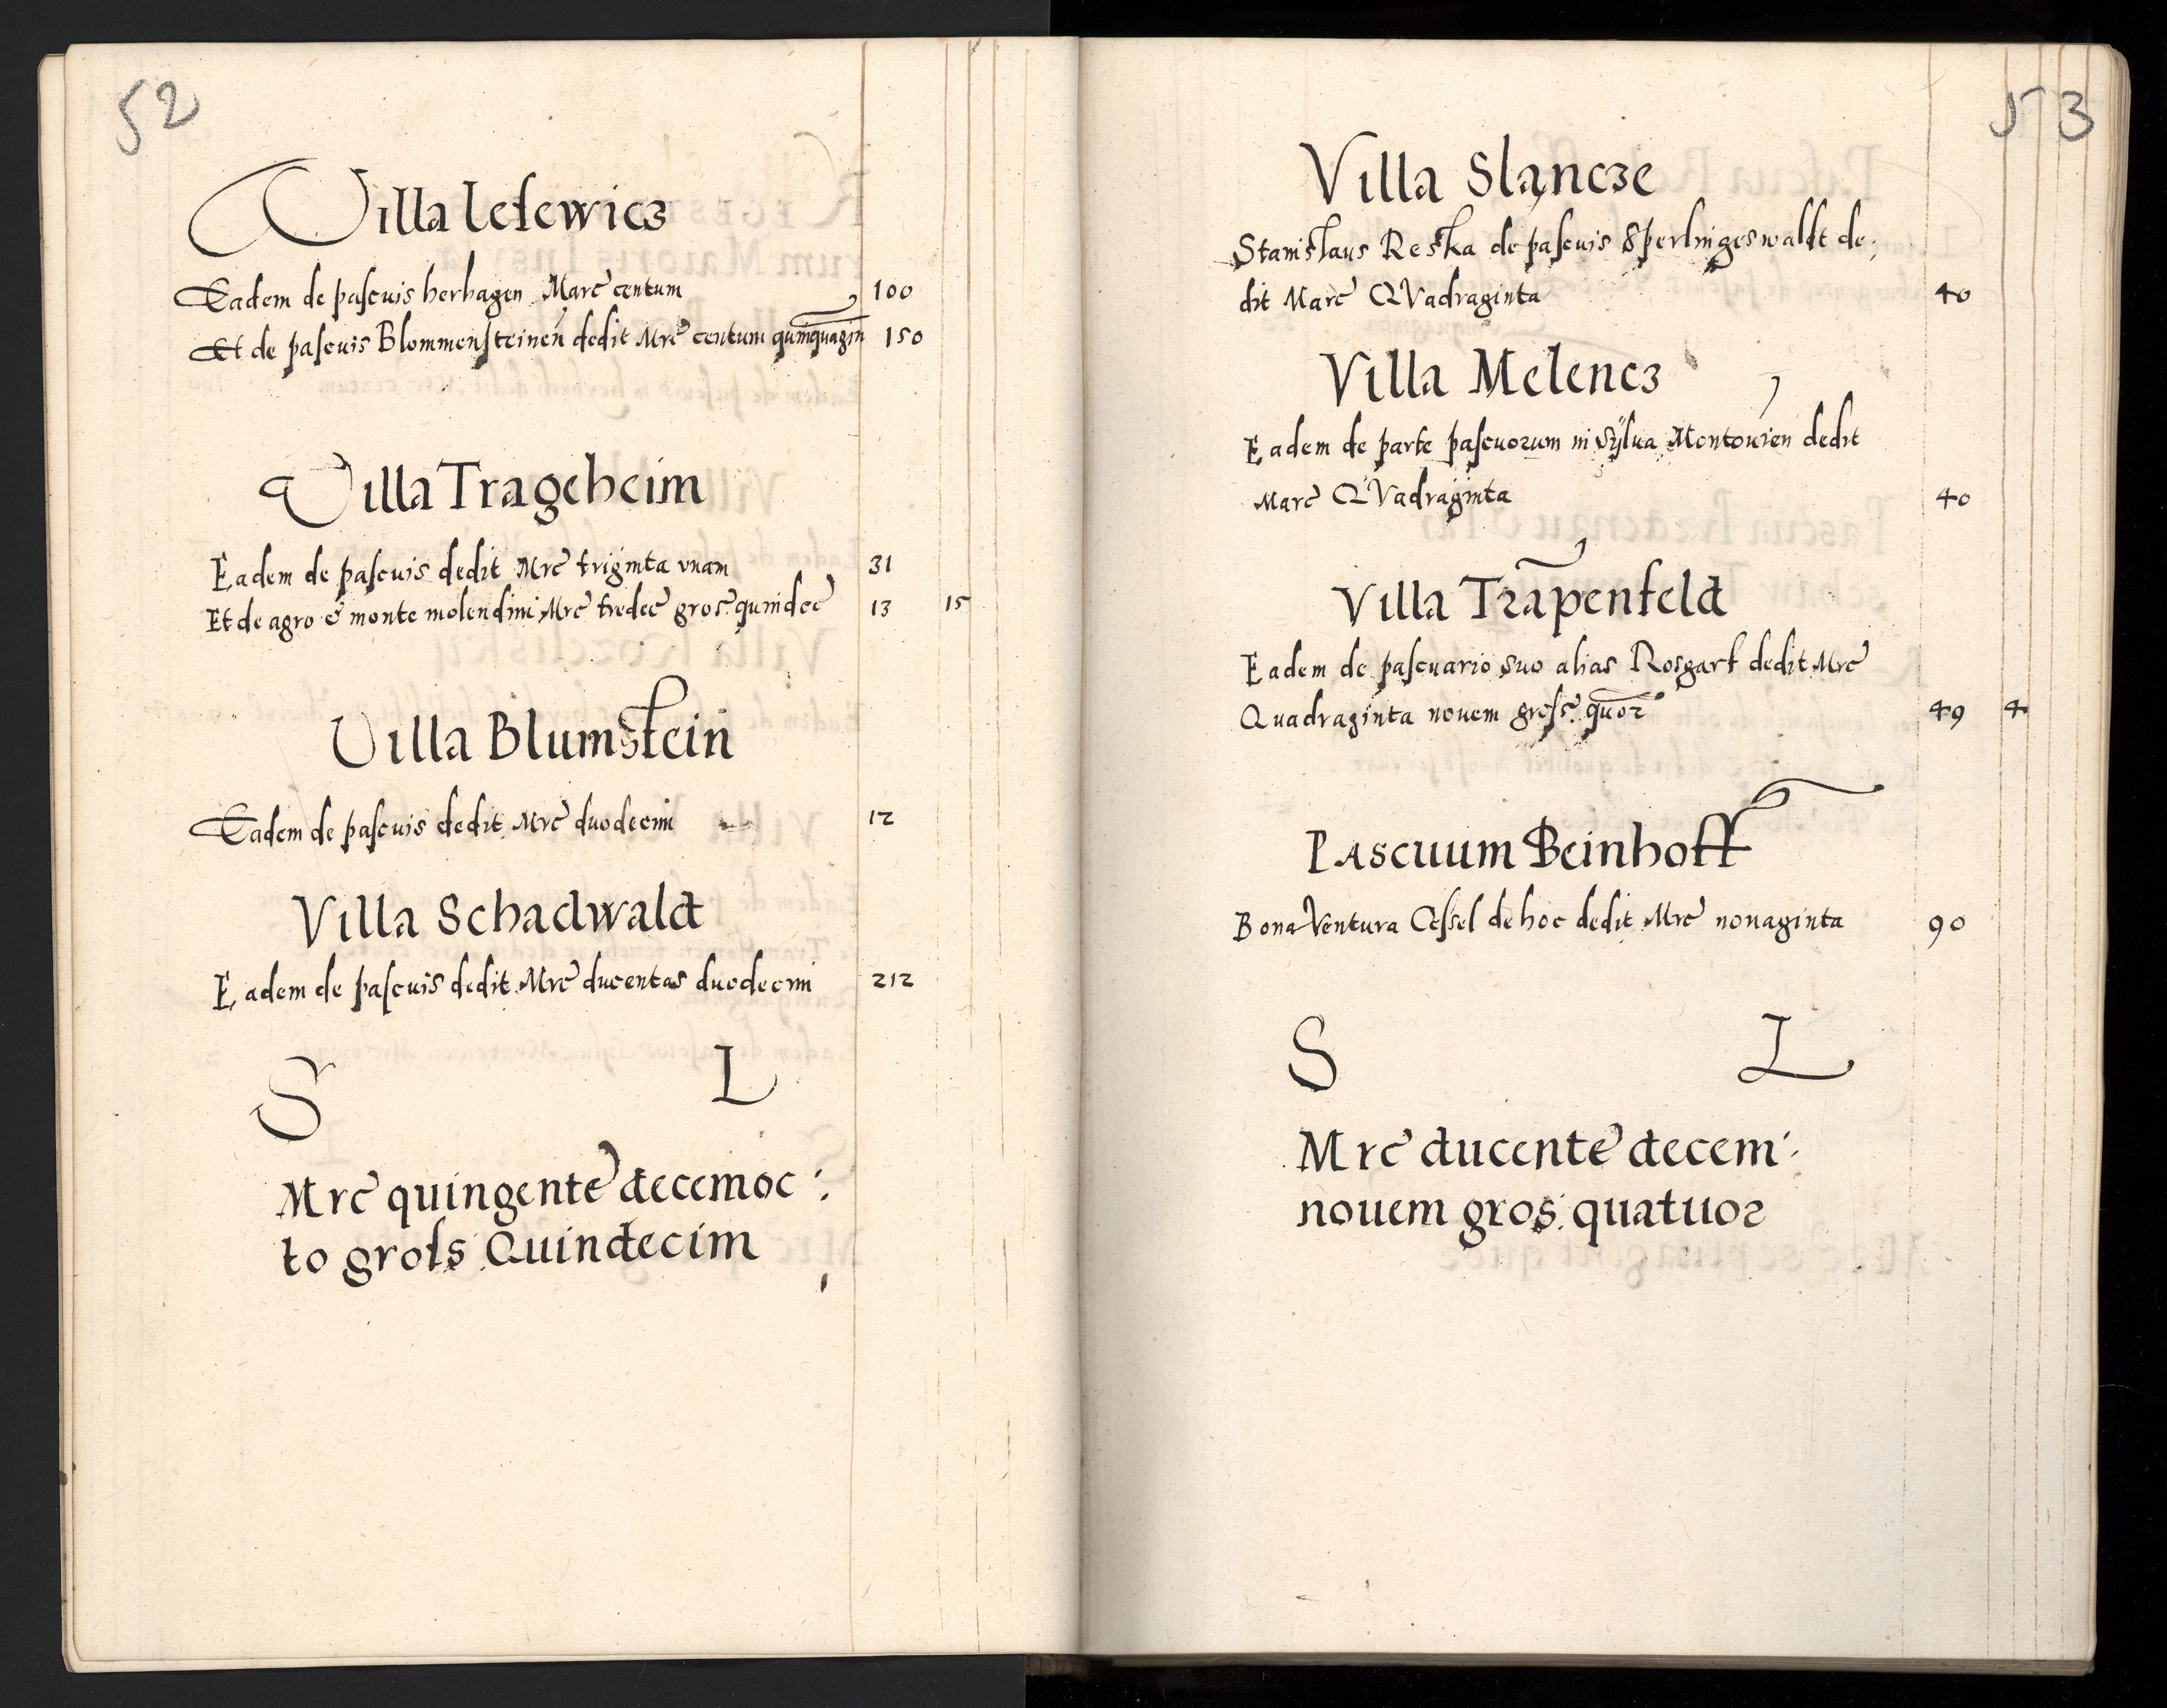 52
Villa Lesewicz
Eadem de pascuis herhagen Marc̃ centum 100
Et de pascuis Blommensteinen̄ dedit Mrc̃ centum quinquagin 150
Villa Trageheim
Eadem de pascuis dedit Mrc̃ triginta vnam 31
Et de agro & monte molendini Mrc̃ tredec̃ gros: quindec̃ 13 15
Villa Blumstein
Eadem de pascuis dedit Mrc̃ duodecim 12
Villa Schadwald
Eadem de pascuis dedit Mrc̃ ducentas duodecim 212
S L
Mrc̃ quingentẽ decemoc:
to gross Quindecim
53
Villa Slancze
Stanislaus Reska de pascuis Sperlingeswaldt de,
dit Marc̃ QVadraginta 40
Villa Melencz
Eadem de parte pascuorum in Sÿlua Montouien dedit
Marc̃ QVadraginta 40
Villa Trãpenfeld
Eadem de pascuario suo alias Rosgart dedit Mrc̃
Quadraginta nouem gross: quor̃ 49 4
Pascuum Beinhoff
BonaVentura Cessel de hoc dedit Mrc̃ nonaginta 90
S L
Mrc̃ ducentẽ decem:
nouem gros: quatuor